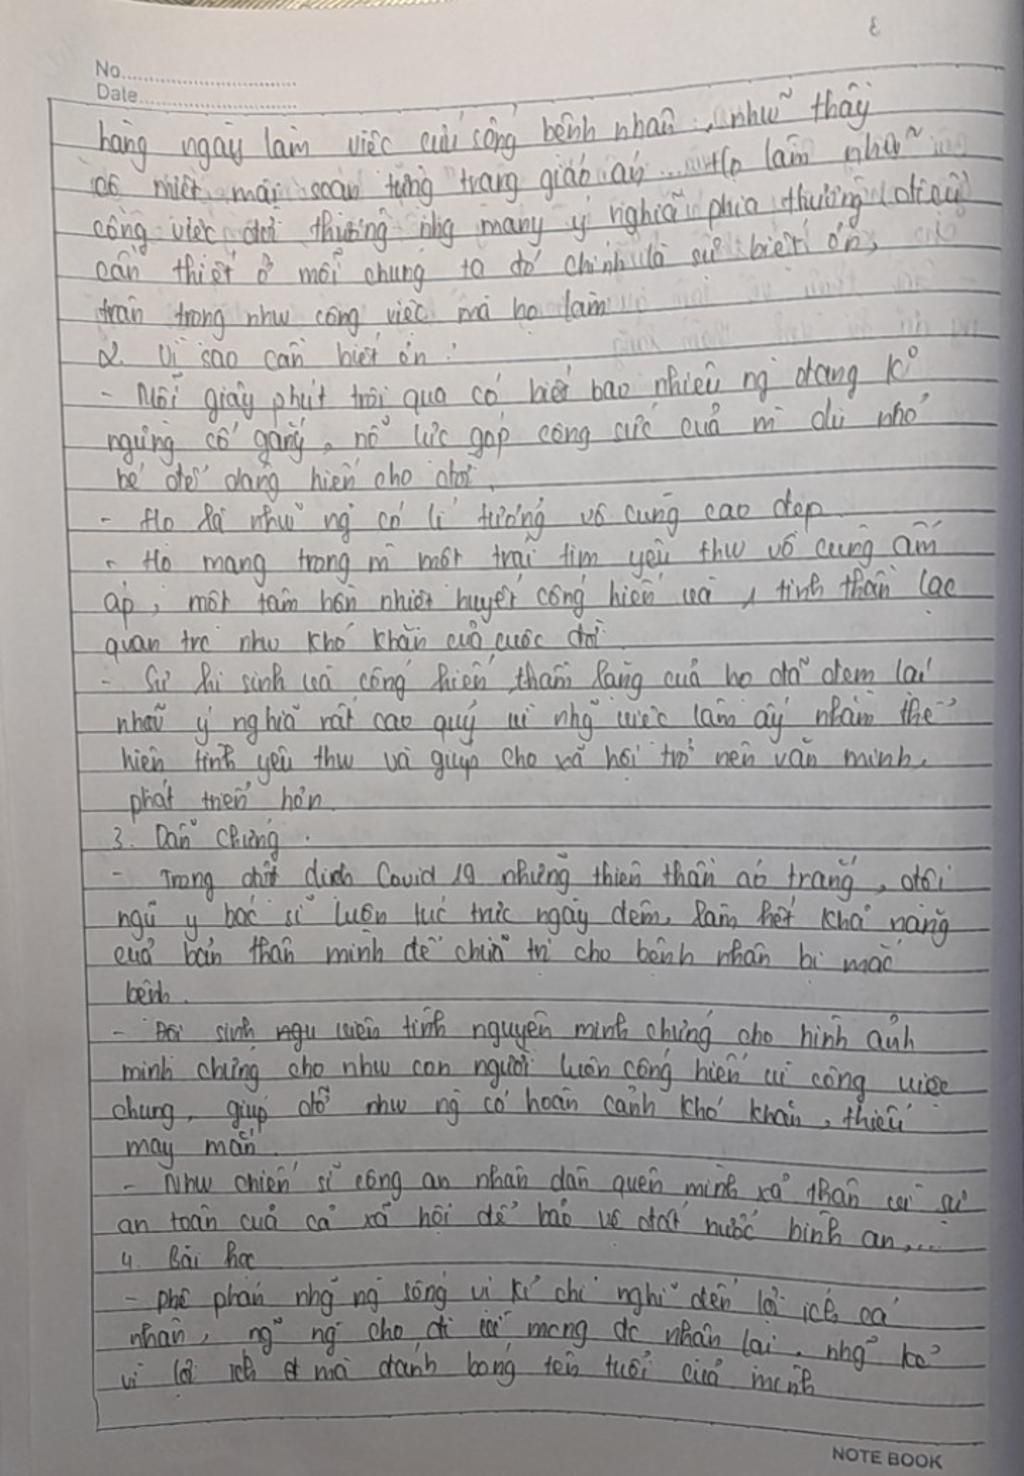 3
No.
Date
hàng ngày làm việc cứu sống bệnh nhân, như thầy
cô miệt mài soạn từng trang giáo án... Họ làm những
công việc đời thường nhg mang ý nghĩa phi thường điều
cần thiết ở mỗi chúng ta đó chính là sự biết ơn,
trân trọng như công việc mà họ làm
2. Vì sao cần biết ơn:
- Mỗi giây phút trôi qua có biết bao nhiêu ng đang ko
ngừng cố gắng, nỗ lực góp công sức của m dù nhỏ
bé để dâng hiến cho đời.
- Họ là như ng có lí tưởng vô cùng cao đẹp
- Họ mang trong m một trái tim yêu thw vô cùng ấm
áp, một tâm hồn nhiệt huyết cống hiến và, tinh thần lạc
quan trc như khó khăn của cuộc đời
- Sự hi sinh và cống hiến thầm lặng của họ đã đem lại
nhau ý nghĩa rất cao quý vì nhg việc làm ấy nhằm thể
hiện tình yêu thw và giúp cho xã hội trở nên văn minh,
phát triển hơn.
3. Dẫn chứng.
- Trong đợt dịch Covid 19 những thiên thần áo trắng, đội
ngũ y bác sĩ luôn túc trực ngày đêm, làm hết khả năng
của bản thân mình để chữa trị cho bệnh nhân bị mắc
bệnh.
- sinh viên tình nguyện minh chứng cho hình ảnh
minh chứng cho như con người luôn cống hiến vì công việc
chung, giúp đỡ như ng có hoàn cảnh khó khăn, thiếu
may mắn
- Như chiến sĩ công an nhân dân quên mình xả thân vì sự
an toàn của cả xã hội để bảo vệ đất nước bình an,...
4. Bài học
- Phê phán nhg ng sống vị kỉ chỉ nghĩ đến lợi ích cá
nhân, ng cho đi mong đc nhận lại, nhg kẻ
vì lợi ích mà đánh bóng tên tuổi của mình
NOTE BOOK